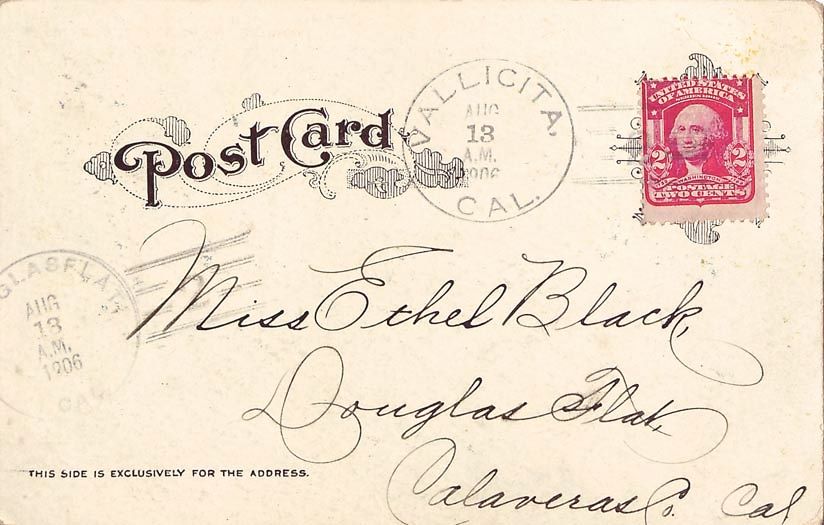 Post Card
VALLICITA,
AUG
13
A.M.
1906
CAL.
UNITED STATES
OF AMERICA
2 2
WASHINGTON
POSTAGE
TWO CENTS
GLASFLAT
AUG
13
A.M.
1906
CAL
Miss Ethel Black,
Douglas Flat,
Calaveras Co. Cal
THIS SIDE IS EXCLUSIVELY FOR THE ADDRESS.